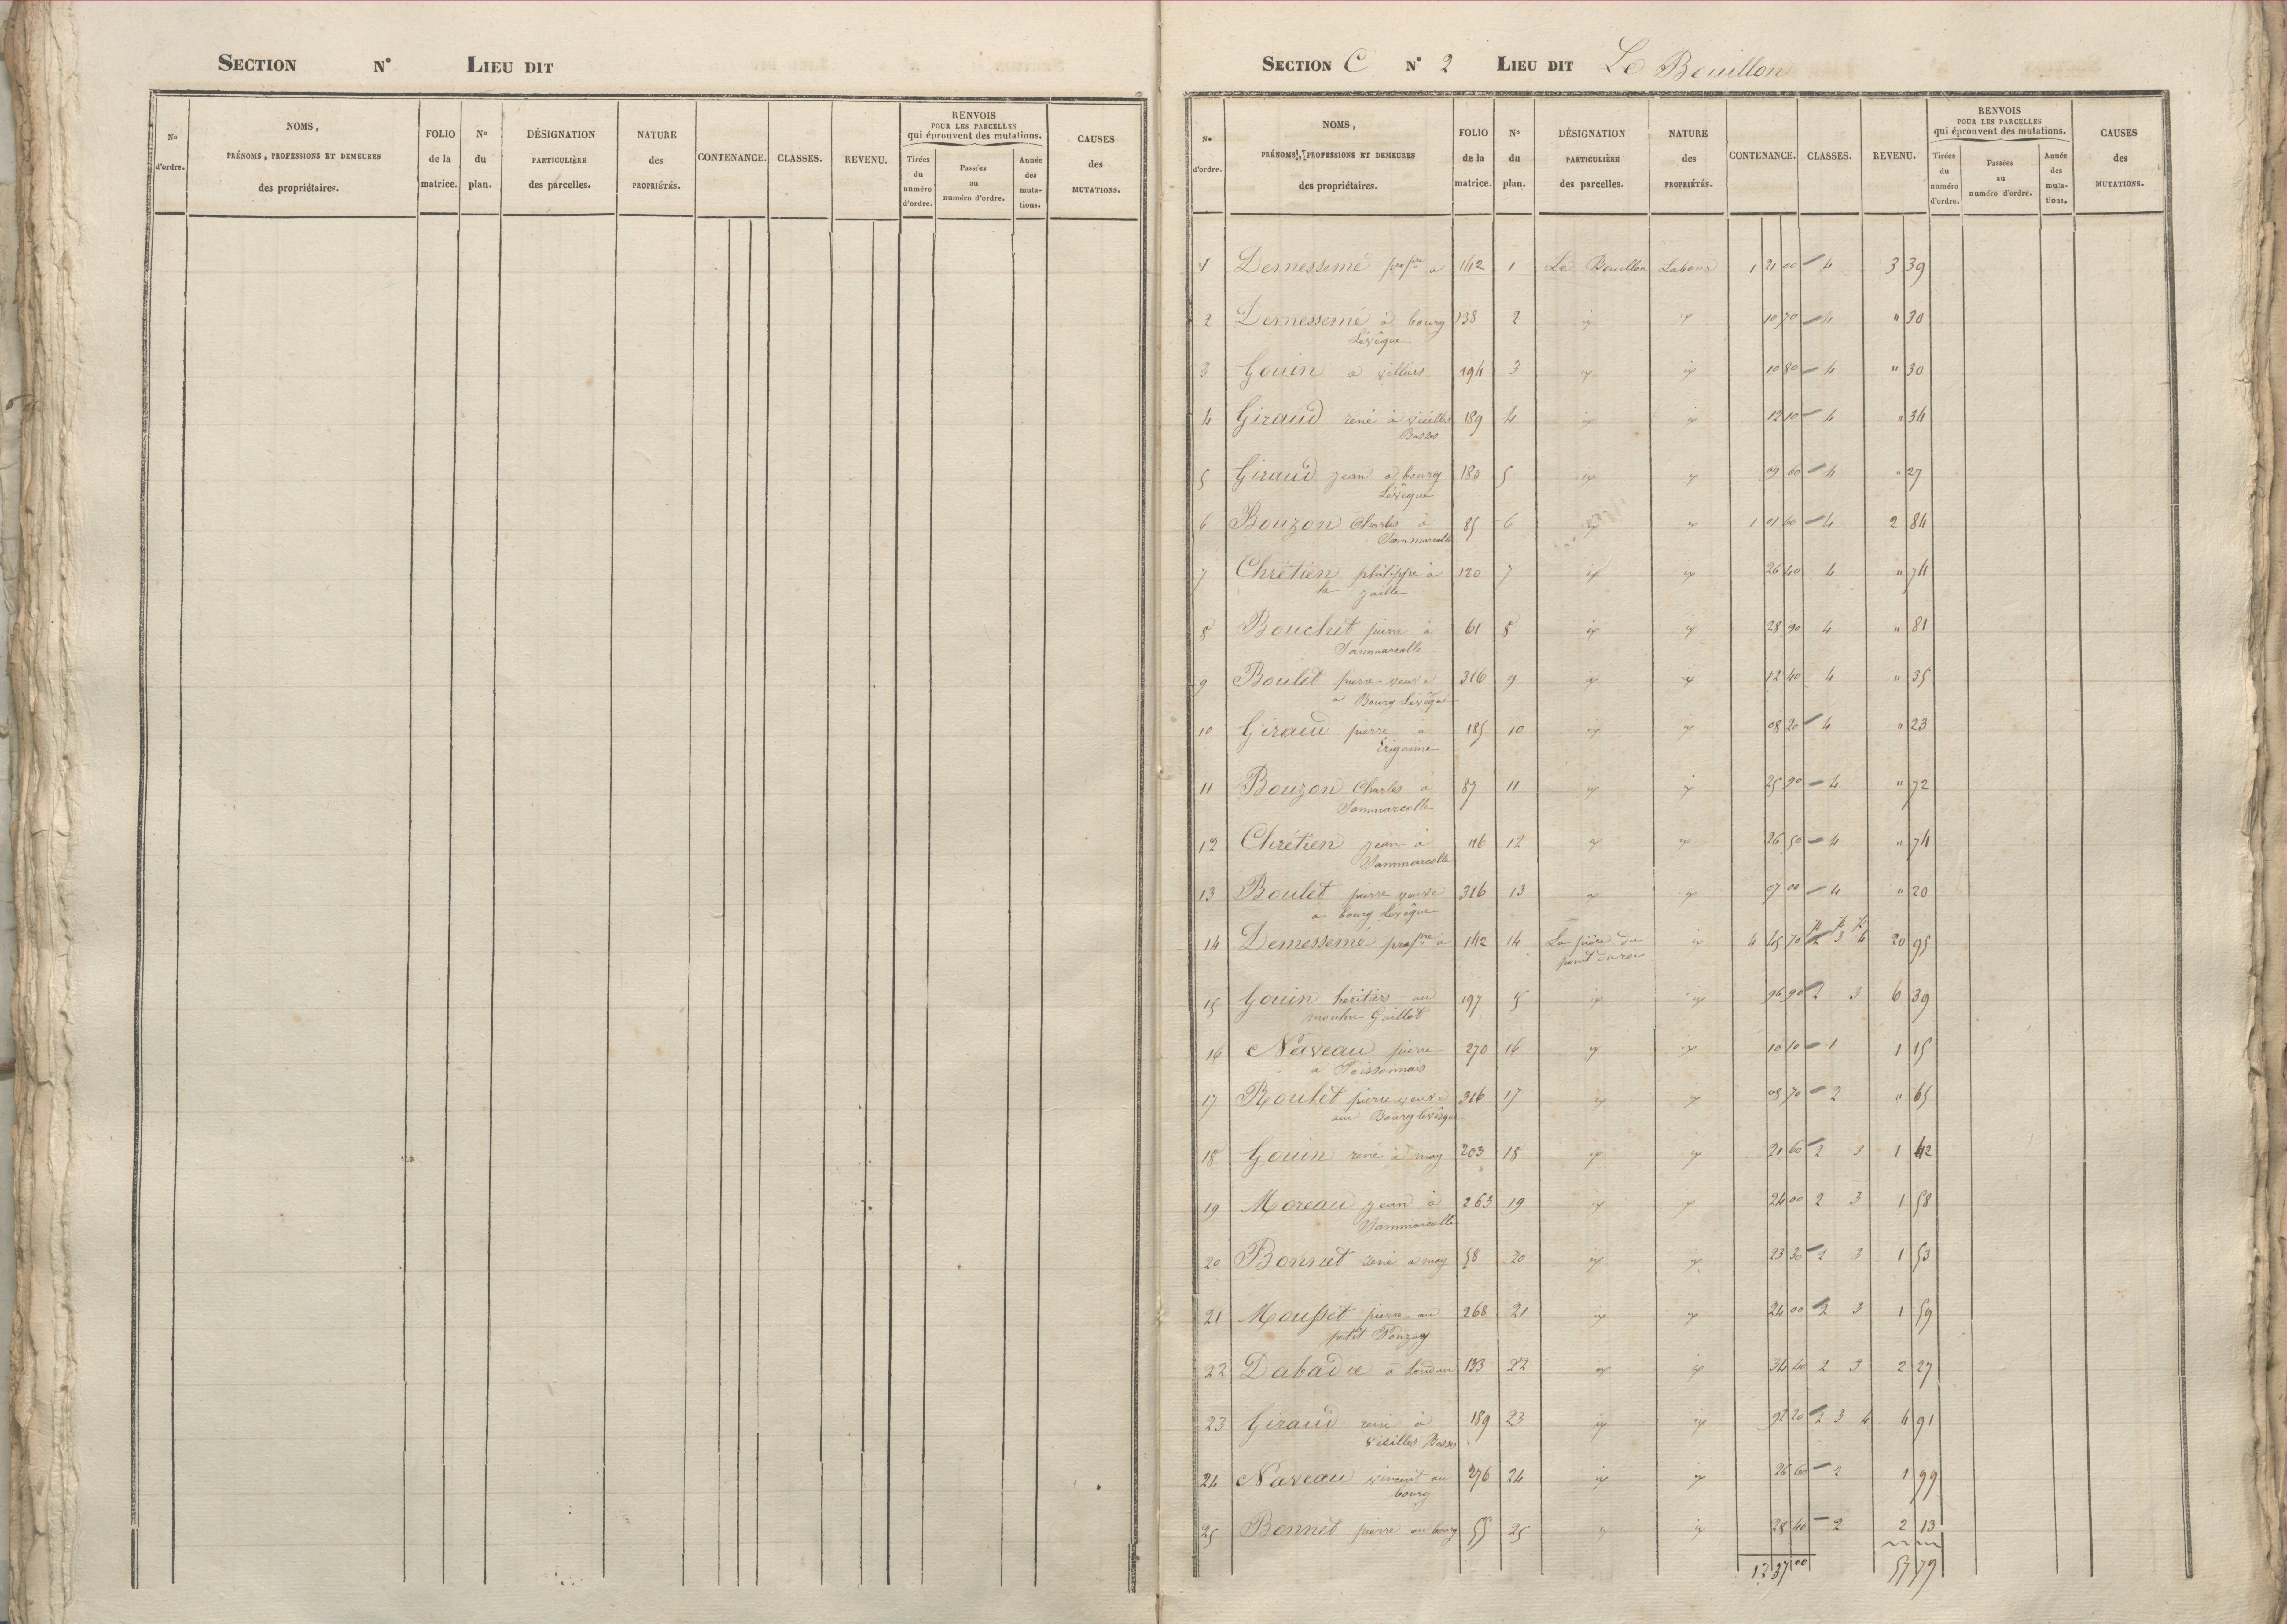 SECTION N° LIEU DIT
N° d'ordre.
NOMS, PRÉNOMS, PROFESSIONS ET DEMEURES des propriétaires.
FOLIO de la matrice.
N° du plan.
DÉSIGNATION PARTICULIÈRE des parcelles.
NATURE des PROPRIÉTÉS.
CONTENANCE.
CLASSES.
REVENU.
RENVOIS POUR LES PARCELLES qui éprouvent des mutations.
Tirées du numéro d'ordre.
Passées au numéro d'ordre.
Année des mutations.
CAUSES des MUTATIONS.
SECTION C N° 2 LIEU DIT Le Bouillon
N° d'ordre.
NOMS, PRÉNOMS, PROFESSIONS ET DEMEURES des propriétaires.
FOLIO de la matrice.
N° du plan.
DÉSIGNATION PARTICULIÈRE des parcelles.
NATURE des PROPRIÉTÉS.
CONTENANCE.
CLASSES.
REVENU.
RENVOIS POUR LES PARCELLES qui éprouvent des mutations.
Tirées du numéro d'ordre.
Passées au numéro d'ordre.
Année des mutations.
CAUSES des MUTATIONS.
1 Demessemé propre a 142 1 Le Bouillon Labour 1 21 00 4 3 39
2 Demessemé à bourg 138 2 id id 10 70 4 " 30
Lévêque
3 Gouin a villiers 194 3 id id 10 80 4 " 30
4 Giraud rené à vieilles 189 4 id id 12 10 4 " 34
Bosses
5 Giraud jean a bourg 180 5 id id 09 60 4 " 27
Lévêque
6 Bouzon Charles à 85 6 id id 1 01 60 4 2 84
Sammarcolle
7 Chrétien philippe à 120 7 id id 26 40 4 " 74
la jaille
8 Bouchet pierre à 61 8 id id 28 90 4 " 81
Sammarcolle
9 Boulet pierre veuve 316 9 id id 12 40 4 " 35
a Bourg Lévêque
10 Giraud pierre a 185 10 id id 08 20 4 " 23
11 Bouzon Charles à 87 11 id id 25 90 4 " 72
Sammarcolle
12 Chrétien jean à 116 12 id id 26 50 4 " 74
Sammarcolle
13 Boulet pierre veuve 316 13 id id 07 00 4 " 20
a bourg Lévêque
14 Demessemé propre a 142 14 La pièce du id 4 45 70 2 3 4 20 95
pont
15 Gouin héritiers au 197 15 id id 96 90 2 3 6 39
moulin Gaillot
16 Naveau pierre 270 16 id id 10 10 1 1 15
a Poissonnais
17 Roulet pierre veuve 316 17 id id 08 70 2 " 65
au Bourg lévêque
18 Gouin rené à moy 203 18 id id 21 60 2 3 1 42
19 Moreau jean à 263 19 id id 24 00 2 3 1 58
Sammarcolle
20 Bonnet rené a moy 58 20 id id 23 30 2 3 1 53
21 Mousset pierre au 268 21 id id 24 00 2 3 1 59
petit Ponzay
22 Dabadie a Loudun 133 22 id id 34 40 2 3 2 27
23 Giraud rené à 189 23 id id 92 20 2 3 4 4 91
vieilles Bosses
24 Naveau vincent au 276 24 id id 26 60 2 1 99
bourg
25 Bonnet pierre au bourg 55 25 id id 28 40 2 2 13
13 37 00 57 79